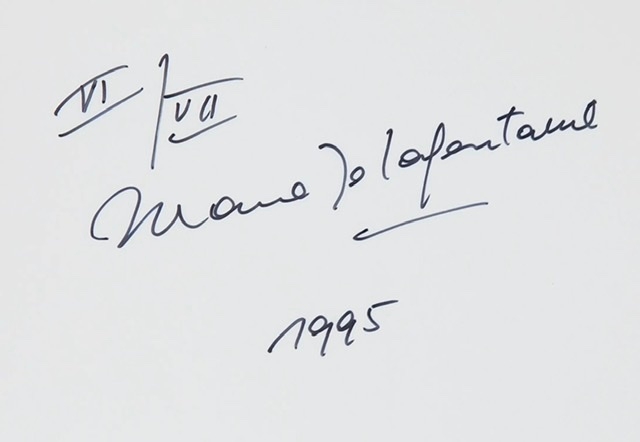 VI/VII
Marie-Jo Lafontaine
1995